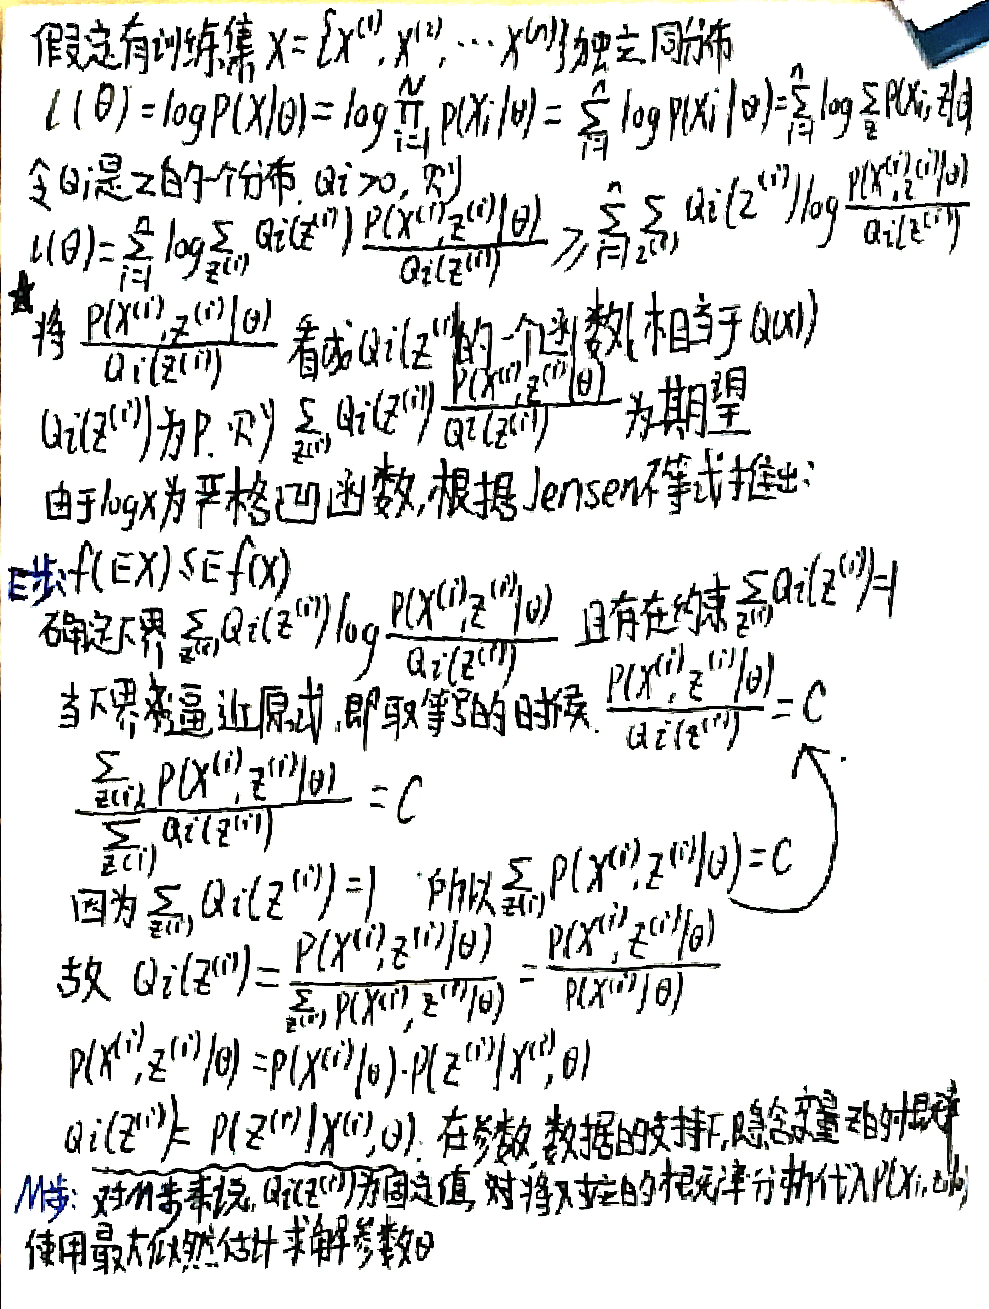 假定有训练集 X = {X^(1), X^(2), ... X^(n)}独立同分布
L(θ) = log P(X|θ) = log ∏_{i=1}^{N} P(X_i|θ) = ∑_{i=1}^{n} log P(X_i|θ) = ∑_{i=1}^{n} log ∑_z P(X_i, z|θ)
令Qi是z的一个分布, Qi>0, 则
L(θ) = ∑_{i=1}^{n} log ∑_{z^(i)} Qi(z^(i)) P(X^(i), z^(i)|θ) / Qi(z^(i)) ≥ ∑_{i=1}^{n} ∑_{z^(i)} Qi(z^(i)) log P(X^(i), z^(i)|θ) / Qi(z^(i))
★将 P(X^(i), z^(i)|θ) / Qi(z^(i)) 看成Qi(z^(i))的一个函数(相当于Q(x))
Qi(z^(i))为P. 则 ∑_{z^(i)} Qi(z^(i)) P(X^(i), z^(i)|θ) / Qi(z^(i)) 为期望
由于logx为严格凹函数,根据Jensen不等式推出:
E步: f(EX) ≤ E f(X)
确定下界 ∑_{z^(i)} Qi(z^(i)) log P(X^(i), z^(i)|θ) / Qi(z^(i)) 且存在约束 ∑_{z^(i)} Qi(z^(i)) = 1
当下界逼近原式,即取等号的时候. P(X^(i), z^(i)|θ) / Qi(z^(i)) = C
∑_{z^(i)} P(X^(i), z^(i)|θ) / ∑_{z^(i)} Qi(z^(i)) = C
因为 ∑_{z^(i)} Qi(z^(i)) = 1 所以 ∑_{z^(i)} P(X^(i), z^(i)|θ) = C
故 Qi(z^(i)) = P(X^(i), z^(i)|θ) / ∑_{z^(i)} P(X^(i), z^(i)|θ) = P(X^(i), z^(i)|θ) / P(X^(i)|θ)
P(X^(i), z^(i)|θ) = P(X^(i)|θ)·P(z^(i)|X^(i), θ)
Qi(z^(i)) = P(z^(i)|X^(i), θ). 在参数,数据的支持下,隐含变量z的概率
M步: 对M步来说, Qi(z^(i))为固定值, 对将对应的概率分布代入P(Xi, z|θ)
使用最大似然估计求解参数θ